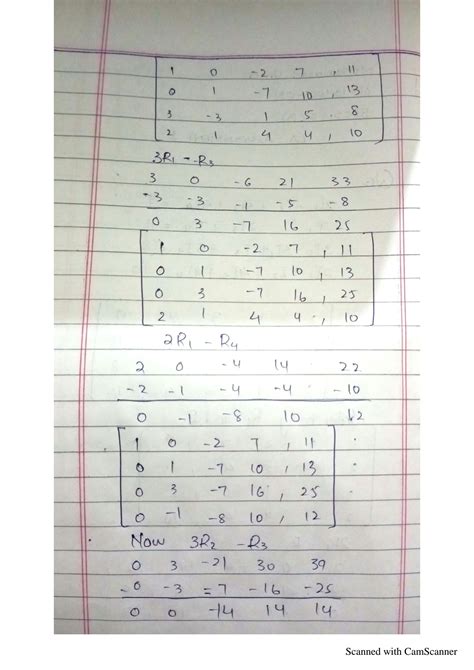 1 0 -2 7 , 11
0 1 -7 10 , 13
3 -3 1 5 . 8
2 1 4 4 , 10
3R1 - R3
3 0 -6 21 33
-3 -3 -1 -5 -8
0 3 -7 16 25
1 0 -2 7 , 11
0 1 -7 10 , 13
0 3 -7 16 , 25
2 1 4 4 , 10
2R1 - R4
2 0 -4 14 22
-2 -1 -4 -4 -10
0 -1 -8 10 12
1 0 -2 7 , 11
0 1 -7 10 , 13
0 3 -7 16 , 25
0 -1 -8 10 , 12
Now 3R2 - R3
0 3 -21 30 39
-0 -3 =7 -16 -25
0 0 -14 14 14
Scanned with CamScanner